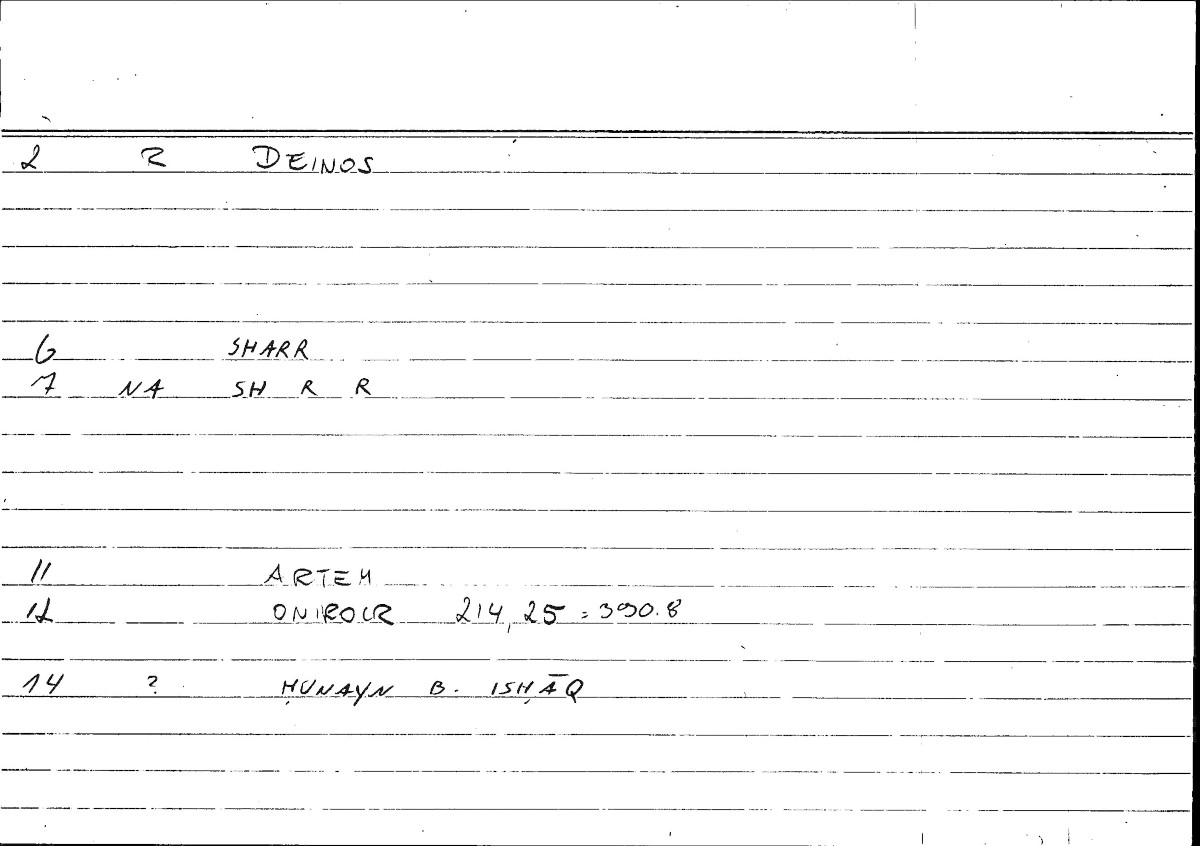 2 R DEINOS
6 SHARR
7 NA SH R R
11 ARTEM
12 ONIROCR 214,25 = 390.8
14 ? ḤUNAYN B. ISḤĀQ